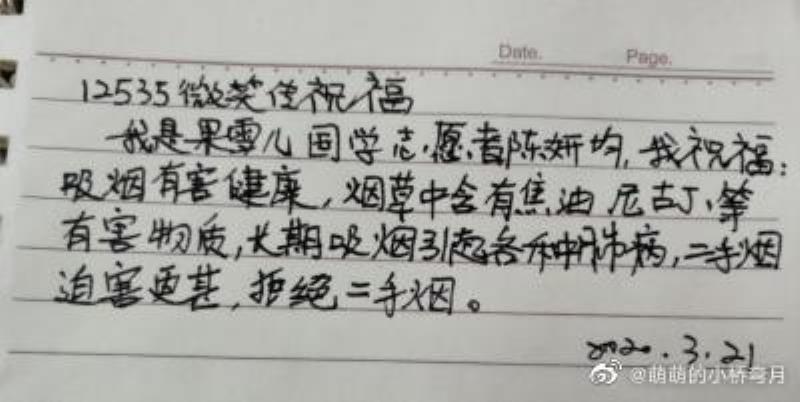 Date. Page.
12535微笑传祝福
我是果雪儿国学志愿者陈妍均,我祝福:
吸烟有害健康,烟草中含有焦油、尼古丁、等
有害物质,长期吸烟引起各种肺病,二手烟
迫害更甚,拒绝二手烟。
2020.3.21
@萌萌的小桥弯月